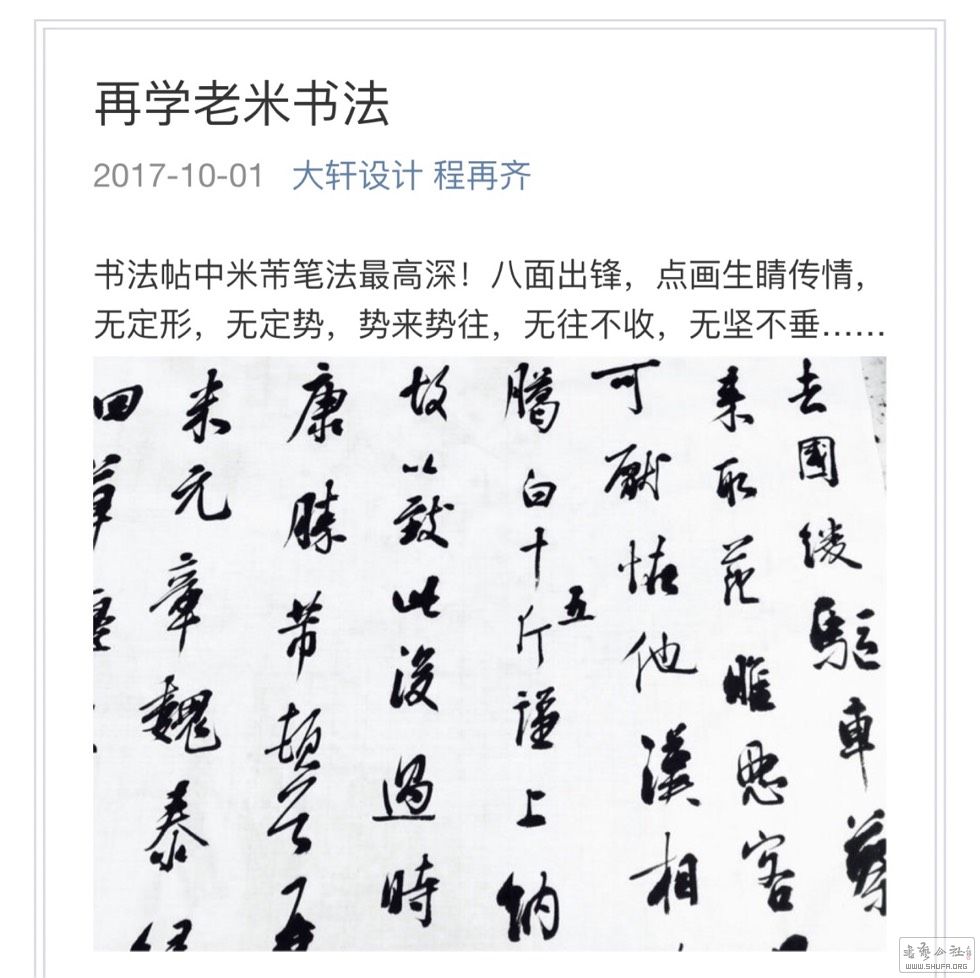 再学老米书法
2017-10-01 大轩设计 程再齐
书法帖中米芾笔法最高深！八面出锋，点画生睛传情，
无定形，无定势，势来势往，无往不收，无坚不垂……
去國緩驅車蔡
来取范睢客
可厭恠他漢相
騰白十五斤謹上納
故以致此後過時
康滕芾頓首再
米元章魏泰
四草
书艺公社
WWW.SHUFA.ORG